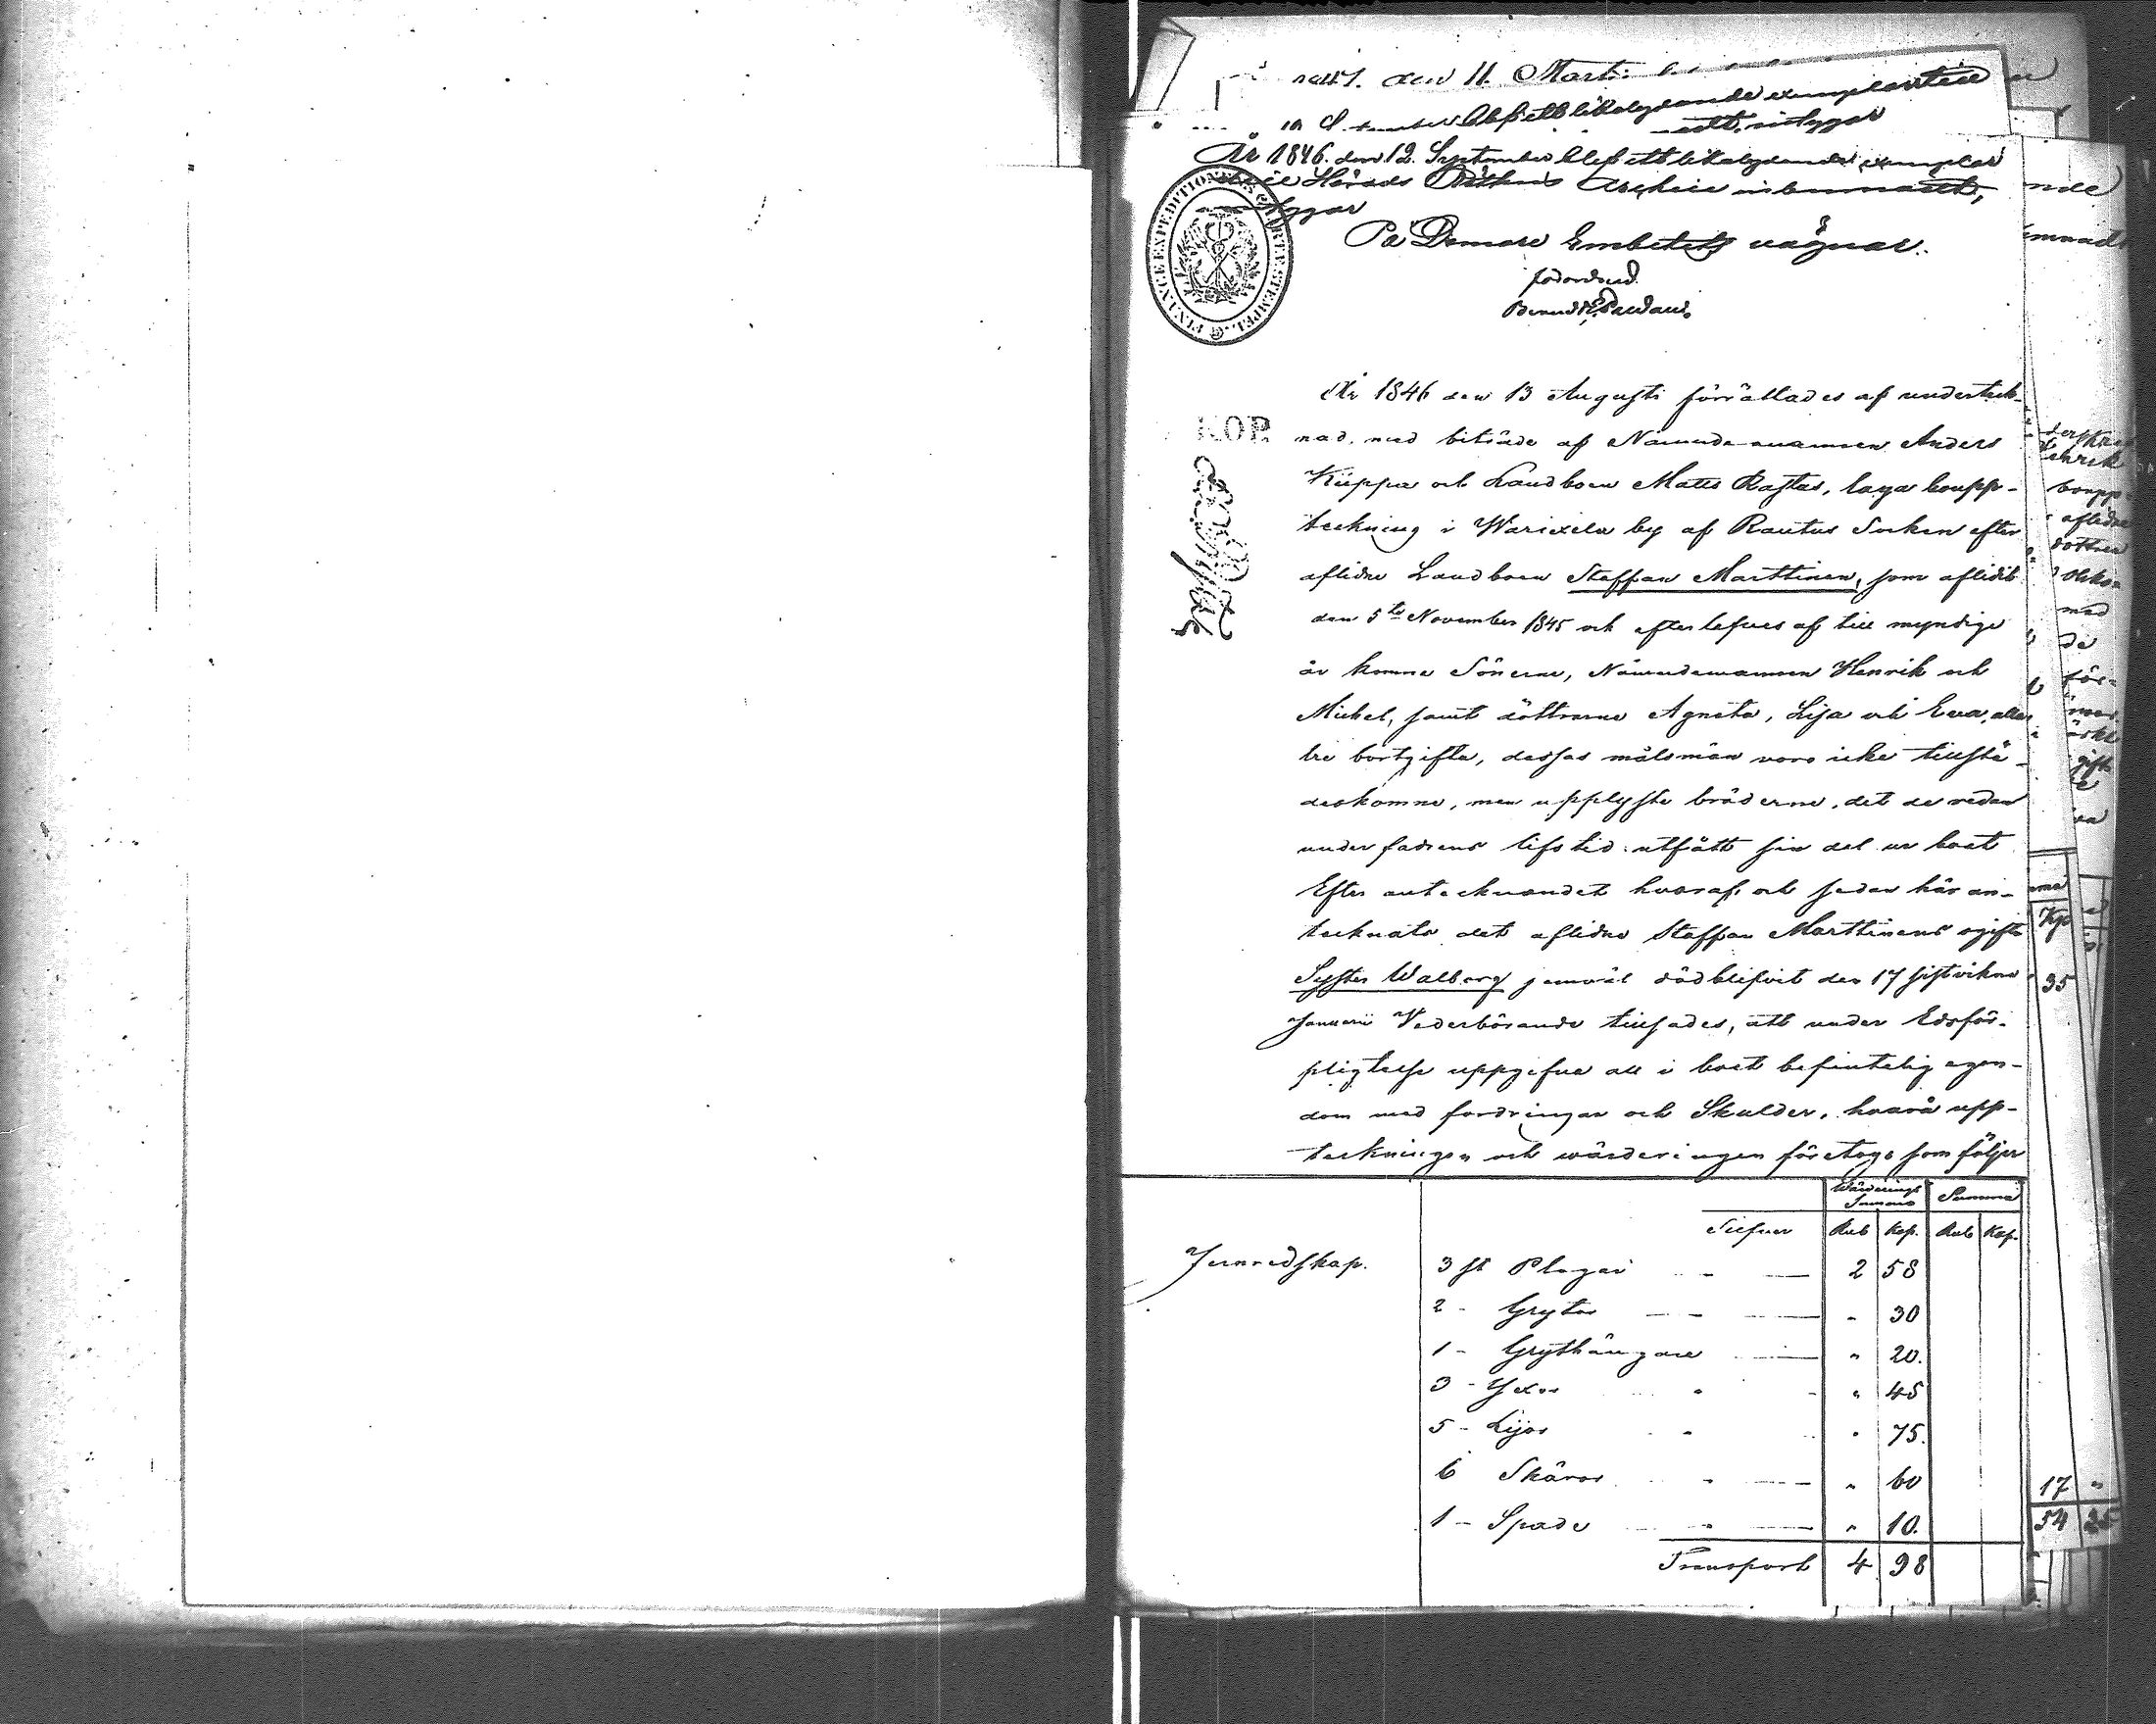 den 11. Mart
blef ett likalydande exemplar till
År 1846. den 12. September blef ett likalydande exemplar
till Härads Rättens Archiv inlemnadt,
intygar
På Domare Embetets vägnar.
förordnad
FINANCE EXPEDITIONENS CHARTÆ STEMPEL
KOP.
År 1846 den 13 Augusti förrättades af underteck-
nad, med biträde af Nämndemannen Anders
Kiippa och Landboen Matts Rastas, laga boupp-
teckning i Warixela by af Rautus Socken efter
aflidne Landboen Staffan Marttinen, som aflidit
den 5te November 1845 och efterlefves af till myndige
år komne Sönerne, Nämndemannen Henrik och
Michel, samt döttrarne Agneta, Lisa och Eva, alla
tre bortgifta, dessas målsmän voro icke tillstä-
deskomne, men upplyste bröderne, det de redan
under fadrens lifstid utfått sin del ur boet
Efter antecknandet hvaraf, och sedan här an-
tecknats det aflidne Staffan Marttinens ogifta
Syster Walborg jemväl död blefvit den 17 sistvikne
Januarii Vederbörande tillsades, att under Edsför-
pligtelse uppgifva all i boet befintelig egen-
dom med fordringar och Skulder, hvarå upp-
teckningen och wärderingen företogs som följer
Wärderings Summa Summa
Silfver Rub Kop. Rub Kop.
Jernredskap. 3 st Plogar 2 58
2 - Grytor " 30
1 - Grythängare " 20.
3 - Yxor " 45
5 - Lijor " 75.
6 Skäror " 60
1 - Spade " 10.
Transport 4 98
Kp
35
17 "
54 25